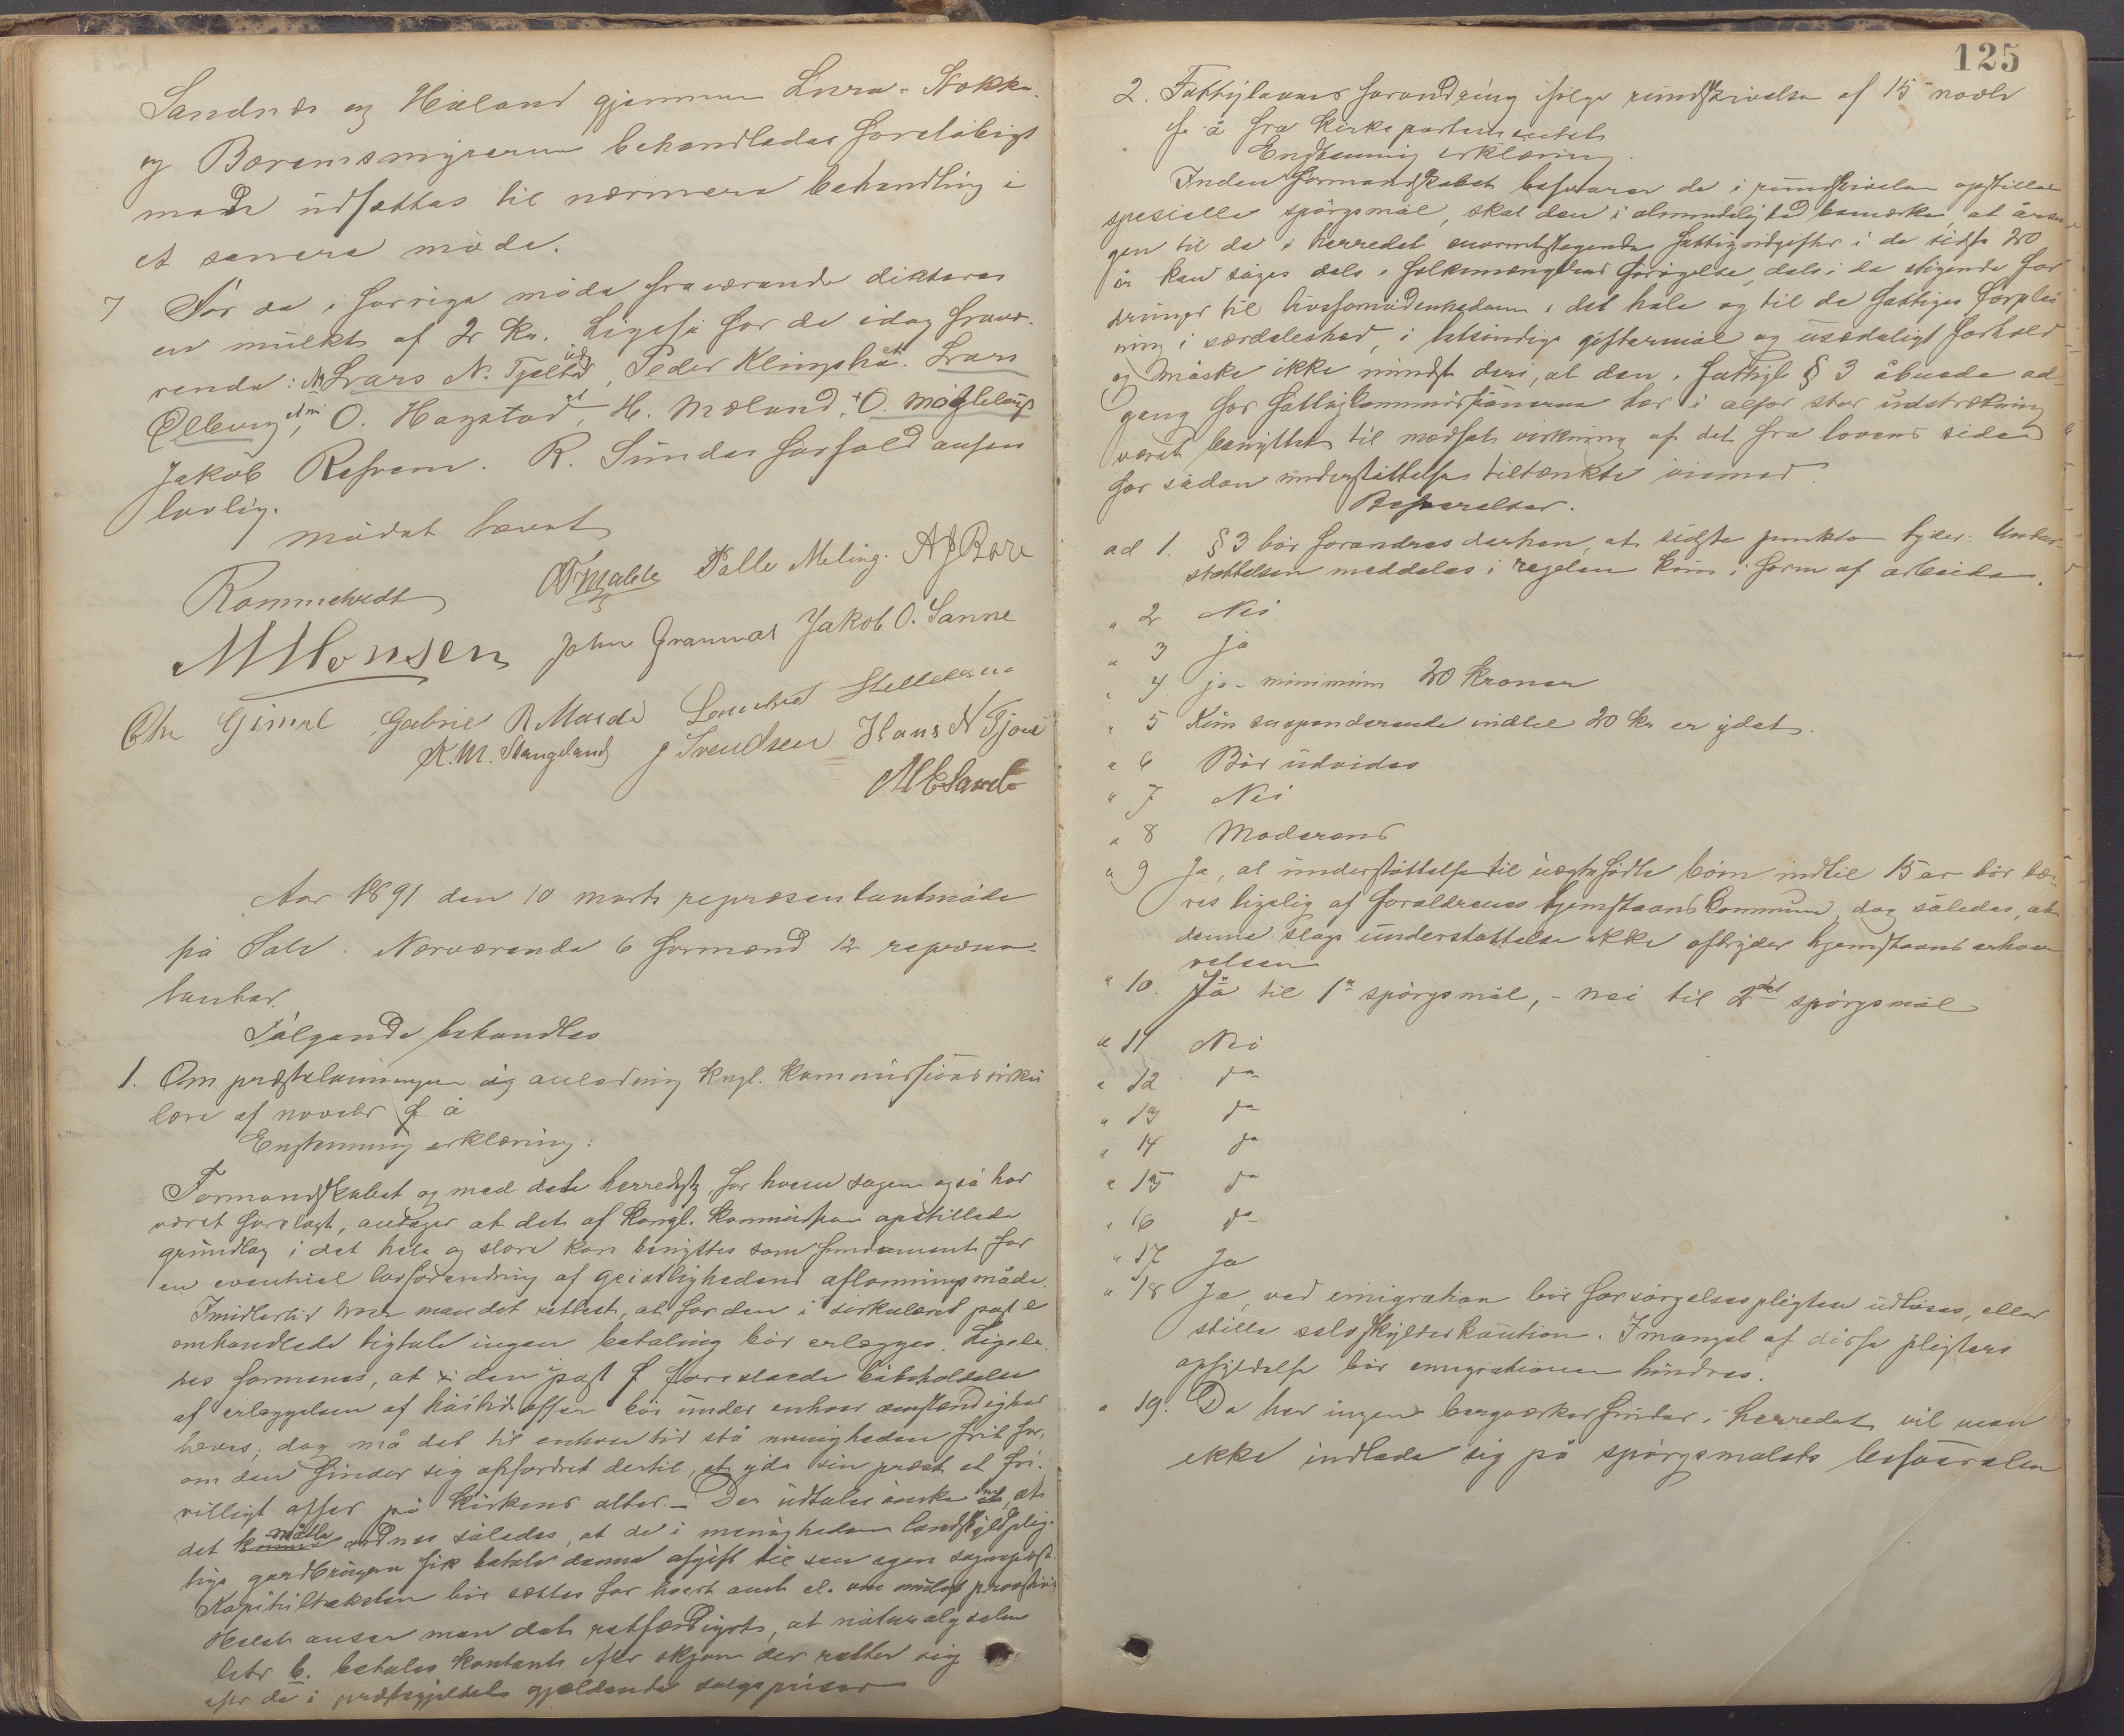 Sandnæs og Høiland gjennem Lura-Stokka-
og Bærumsmyrerne behandledes foreløbigt
men udsættes til nærmere behandling i
et senere møde.
7 For de i forrige møde fraværende dikteres
en mulkt af 2 kr. Ligeså for de idag fravæ-
rende: Lars N. Tjelta, Peder Klingshei. Lars
Ølberg, O. Hogstad, H. Mæland, O. Møgletun
Jakob Refsnes. R. Sundes forfald ansees
lovlig.
mødet hævet
Rommetvedt OTMalde Palle Meling. A J Bore
M Monsen John Grannes Jakob O. Sanne
Chr Gimre Gabriel R Malde Lauritz Hellestø
K. M. Stangeland J Svendsen Hans N Tjora
M E Sande
Aar 1891 den 10 marts repræsentantmøde
på Sole. Nærværende 6 formænd 12 repræsen-
tanter.
Følgende behandles
1. Om præstelønningen i anledning kngl. kommissions sirku
lære af novebr f å
Enstemmig erklæring:
Formandskabet og med dets herredsst for hvem sagen også har
været forelagt, antager at det af kongl. kommission opstillede
grundlag i det hele og store kan benyttes som fundament for
en eventuel lovforandring af geistlighedens aflønningsmåde.
Imidlertid tror man det rettest, at for den i sirkulæret post e
omhandlede tigtale ingen betaling bør erlægges. Ligele
des formenes, at den i post f foreslaede bibeholdelse
af erlæggelsen af høitidsoffer bør under enhver omstændighed
hæves; dog må det til enhver tid stå menigheden frit for,
om den finder sig opfordret dertil, at yde sin præst et fri-
villigt offer på kirkens alter. – Der udtales ønske om, at
det måtte ordnes således, at de i menigheden landskyldplig-
tige gardbrugere fik betale denne afgift til sin egen sogneprest.
Kapitelstaksten bør sættes for hvert amt el. om muligt provstivis
Helst anser man det retfærdigst, at naturalydelsen
litr b. betales kontant efter skjøn der retter sig
efter de i præstegjeldet gjældende salgspriser
125
2. Fattiglovens forandring ifølge rundskrivelse af 15 novbr
f. å fra kirkepartementet
Enstemmig erklæring.
Inden formandskabet besvarer de i rundskrivelsen opstillede
spesielle spørgsmål, skal den i almindelighed bemærke, at årsa
gen til de i herredet enormt stegende fattigudgifter i de sidste 20
år kan søges dels i folkemængdens forøgelse, dels i de stigende for
dringer til livsfornødenhederne i det hele og til de fattiges forplei
ning i særdeleshed, i letsindige giftermål og usædeligt forhold
og måske ikke mindst deri, at den i fattigl § 3 åbnede ad
gang for fattigkommissionerne har i alfor stor udstrækning
været benyttet til modsat virkning af det fra lovens side
for sådan understøttelse tiltænkte øiemed.
Besvarelser.
ad 1. § 3 bør forandres derhen, at sidste punktum lyder: Under-
støttelsen meddeles i regelen kun i form af arbeide.
" 2 Nei
" 3 ja
" 4 ja – minimum 20 kroner
" 5 Kun suspenderende indtil 20 kr er ydet.
" 6 Bør udvides
" 7 Nei
" 8 Moderens
" 9 Ja, at understøttelse til uægtefødte børn indtil 15 år bør bæ-
res ligelig af forældrenes hjemstavnskommune, dog således, at
denne slags understøttelse ikke afbryder hjemstavns erhver
velsen
" 10. Ja til 1ste spørgsmål, – nei til 2det spørgsmål
" 11 Nei
" 12 ja
" 13 ja
" 14 ja
" 15 ja
" 16 ja
" 17 Ja
" 18 Ja, ved emigration bør forsørgelsespligten udløses, eller
stille selvskyldnerkaution. I mangel af disse pligters
opfyldelse bør emigrationen hindres.
" 19. Da her ingen bergværker findes i herredet vil man
ikke indlade sig på spørgsmålets besvarelse